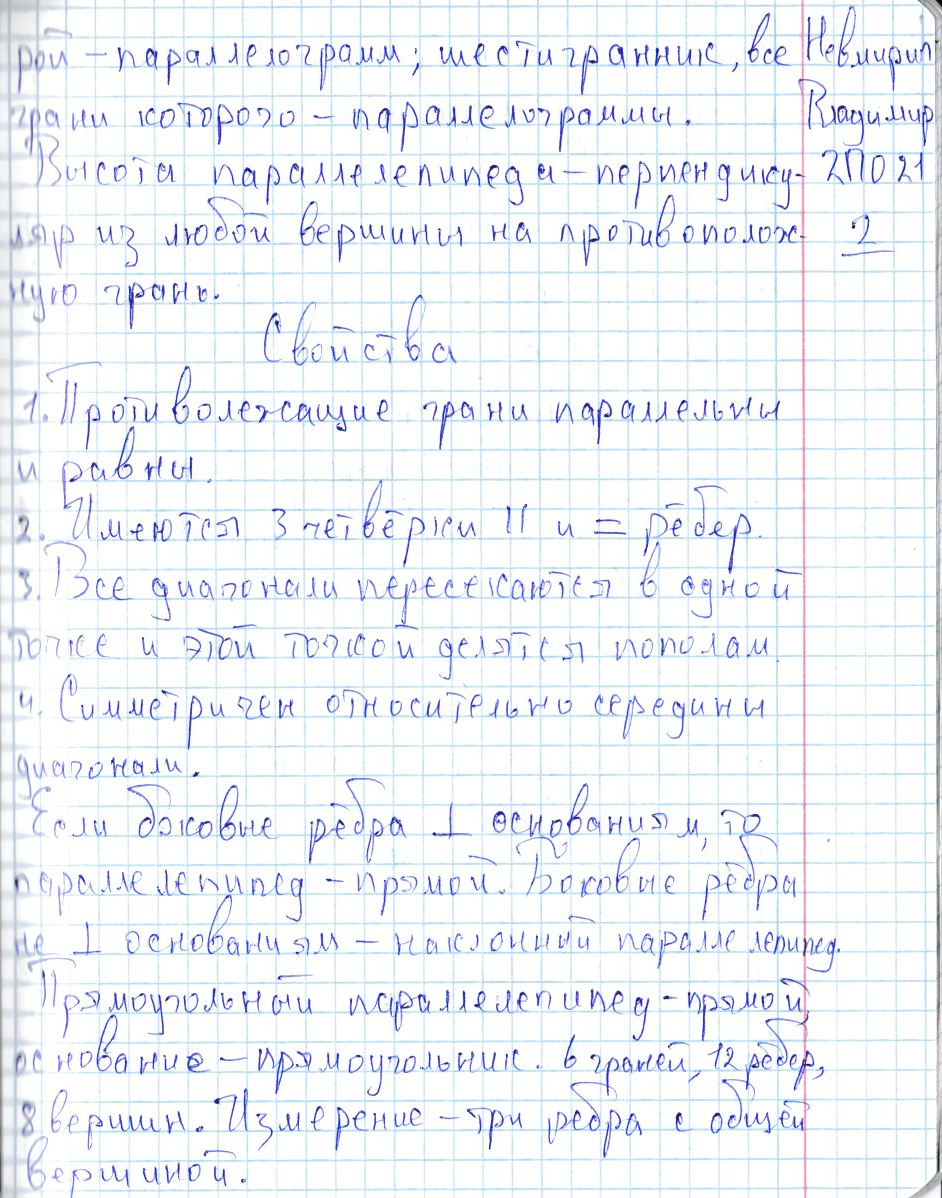 рой – параллелограмм; шестигранник, все
грани которого – параллелограммы.
Высота параллелепипеда – перпендику-
ляр из любой вершины на противополож-
ную грань.
Свойства
1. Противолежащие грани параллельны
и равны.
2. Имеются 3 четвёрки || и = рёбер.
3. Все диагонали пересекаются в одной
точке и этой точкой делятся пополам.
4. Симметричен относительно середины
диагонали.
Если боковые рёбра ⊥ основаниям, то
параллелепипед – прямой. Боковые рёбра
не ⊥ основаниям – наклонный параллелепипед.
Прямоугольный параллелепипед – прямой,
основание – прямоугольник. 6 граней, 12 рёбер,
8 вершин. Измерение – три ребра с общей
вершиной.
Владимир
2ПО21
2